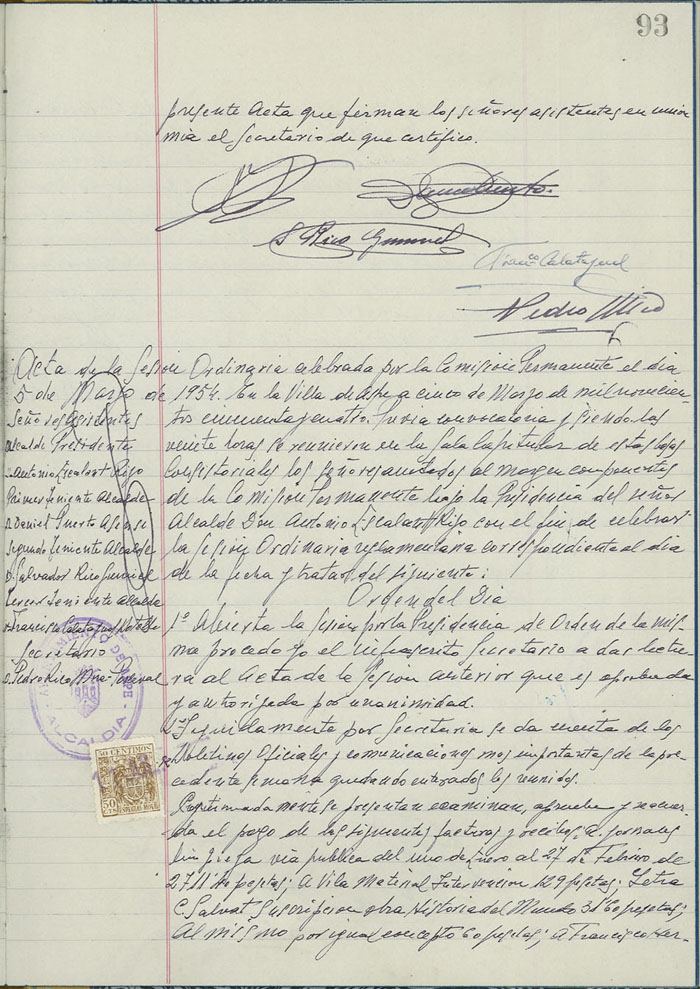 93
presente Acta que firman los señores asistentes en unión
mia el Secretario de que certifico.
S Rico Gumiel
Franco Calatayud
Pedro Mico
Acta de la Sesion Ordinaria celebrada por la Comision Permanente el dia
5 de Marzo de 1954. En la Villa de Aspe a cinco de Marzo de mil novecien-
tos cincuenta y cuatro. Previa convocatoria y siendo las
veinte horas se reunieron en la Sala Capitular de estas Casas
Consistoriales los señores anotados al margen componentes
de la Comision Permanente bajo la Presidencia del señor
Alcalde Don Antonio Escalant Rizo con el fin de celebrar
la Sesion Ordinaria reglamentaria correspondiente al dia
de la fecha y tratar del siguiente:
Orden del Dia
1º Abierta la Sesion por la Presidencia de Orden de la mis-
ma procedo yo el infrascrito Secretario a dar lectu-
ra al Acta de la Sesion anterior que es aprobada
y autorizada por unanimidad.
Seguidamente por Secretaria se da cuenta de los
Boletines Oficiales y comunicaciones mas importantes de la pre-
cedente semana quedando enterados los reunidos.
se presentan examinan, aprueba y acuer-
da el pago de las siguientes facturas y recibos: a jornales
limpieza via publica del uno de Enero al 27 de Febrero de
pesetas; A Vila Material Intervencion 129 pesetas;
C. Salvat Suscripcion obra Historia del Mundo 31'60 pesetas;
Al mismo por igual concepto 60 pesetas; a Francisco Her-
Señores asistentes
Alcalde Presidente
D. Antonio Escalant Rizo
Primer Teniente Alcalde
D. Daniel Puerto Asensi
Segundo Teniente Alcalde
D. Salvador Rico Gumiel
Tercer Teniente Alcalde
D. Francisco Calatayud
Secretario
D. Pedro Rico
AYUNTAMIENTO DE ASPE
ALCALDIA
50 CENTIMOS
50 CTS